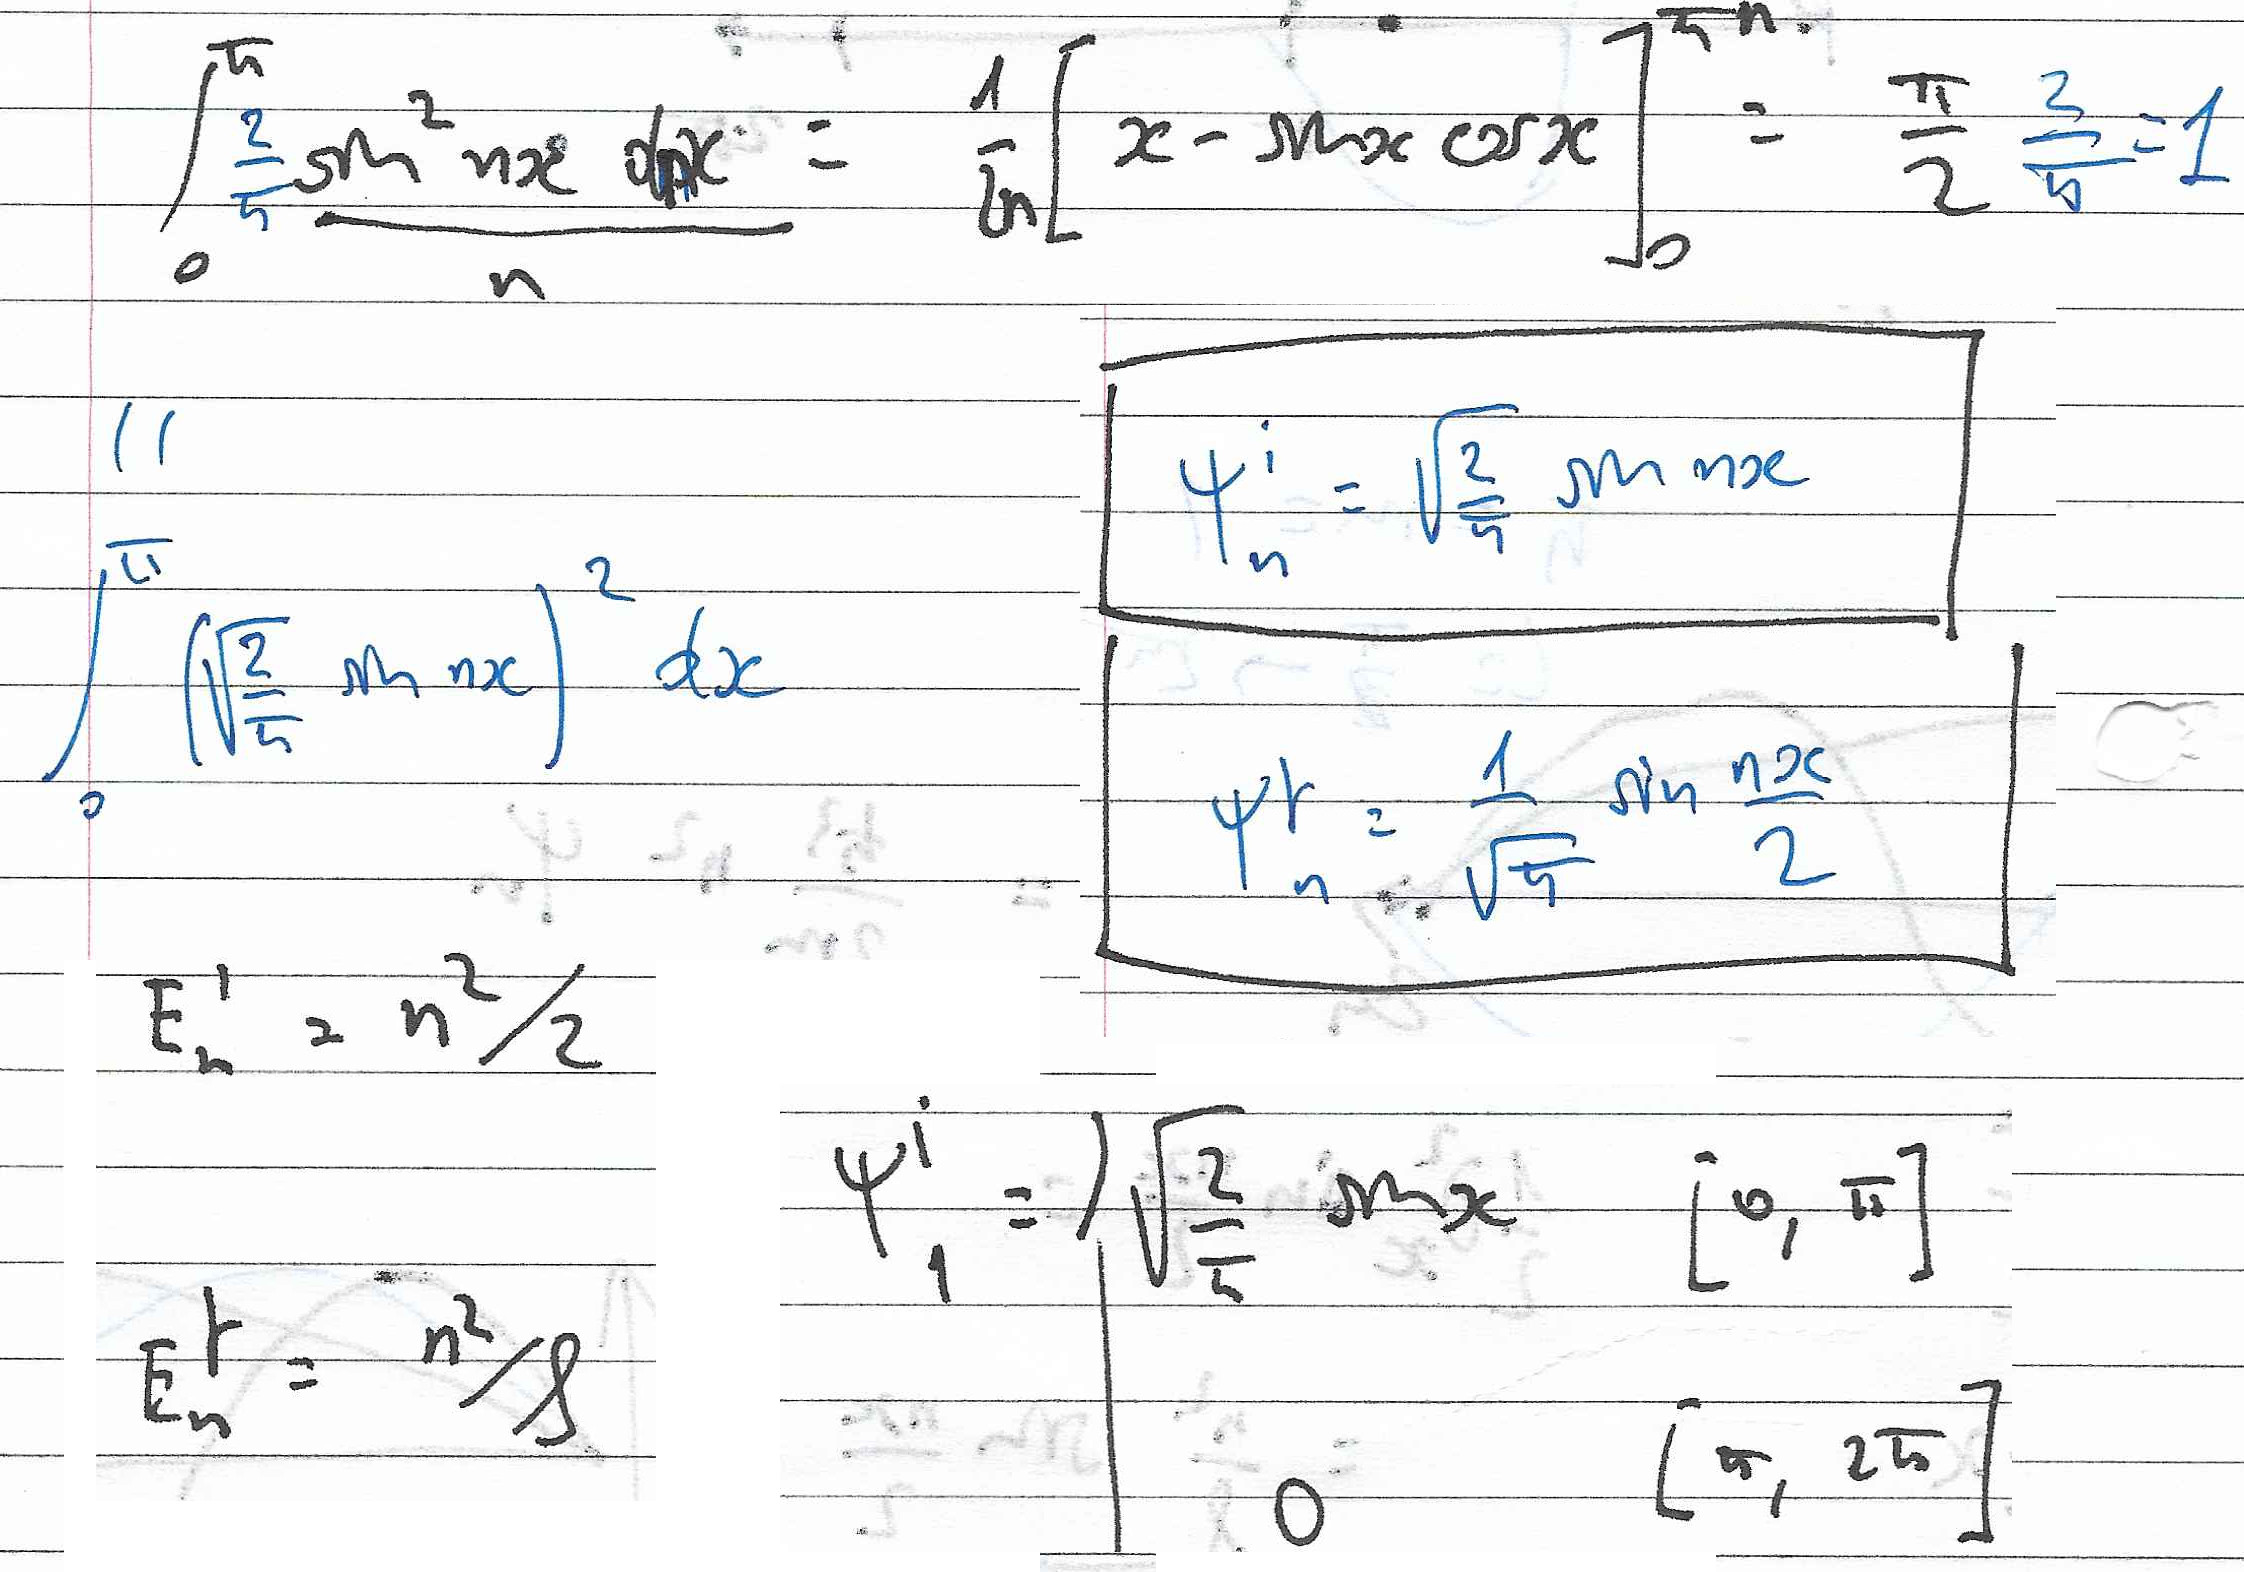 ∫₀^π 2/π sin² nx dnx / n = 1/2n [x - sin x cos x]₀^πn. = π/2 2/π = 1
||
∫₀^π (√(2/π) sin nx)² dx
ψₙⁱ = √(2/π) sin nx
ψₙᶠ = 1/√π sin nx/2
Eₙⁱ = n²/2
Eₙᶠ = n²/8
ψ₁ⁱ = √(2/π) sin x [0, π]
0 [π, 2π]